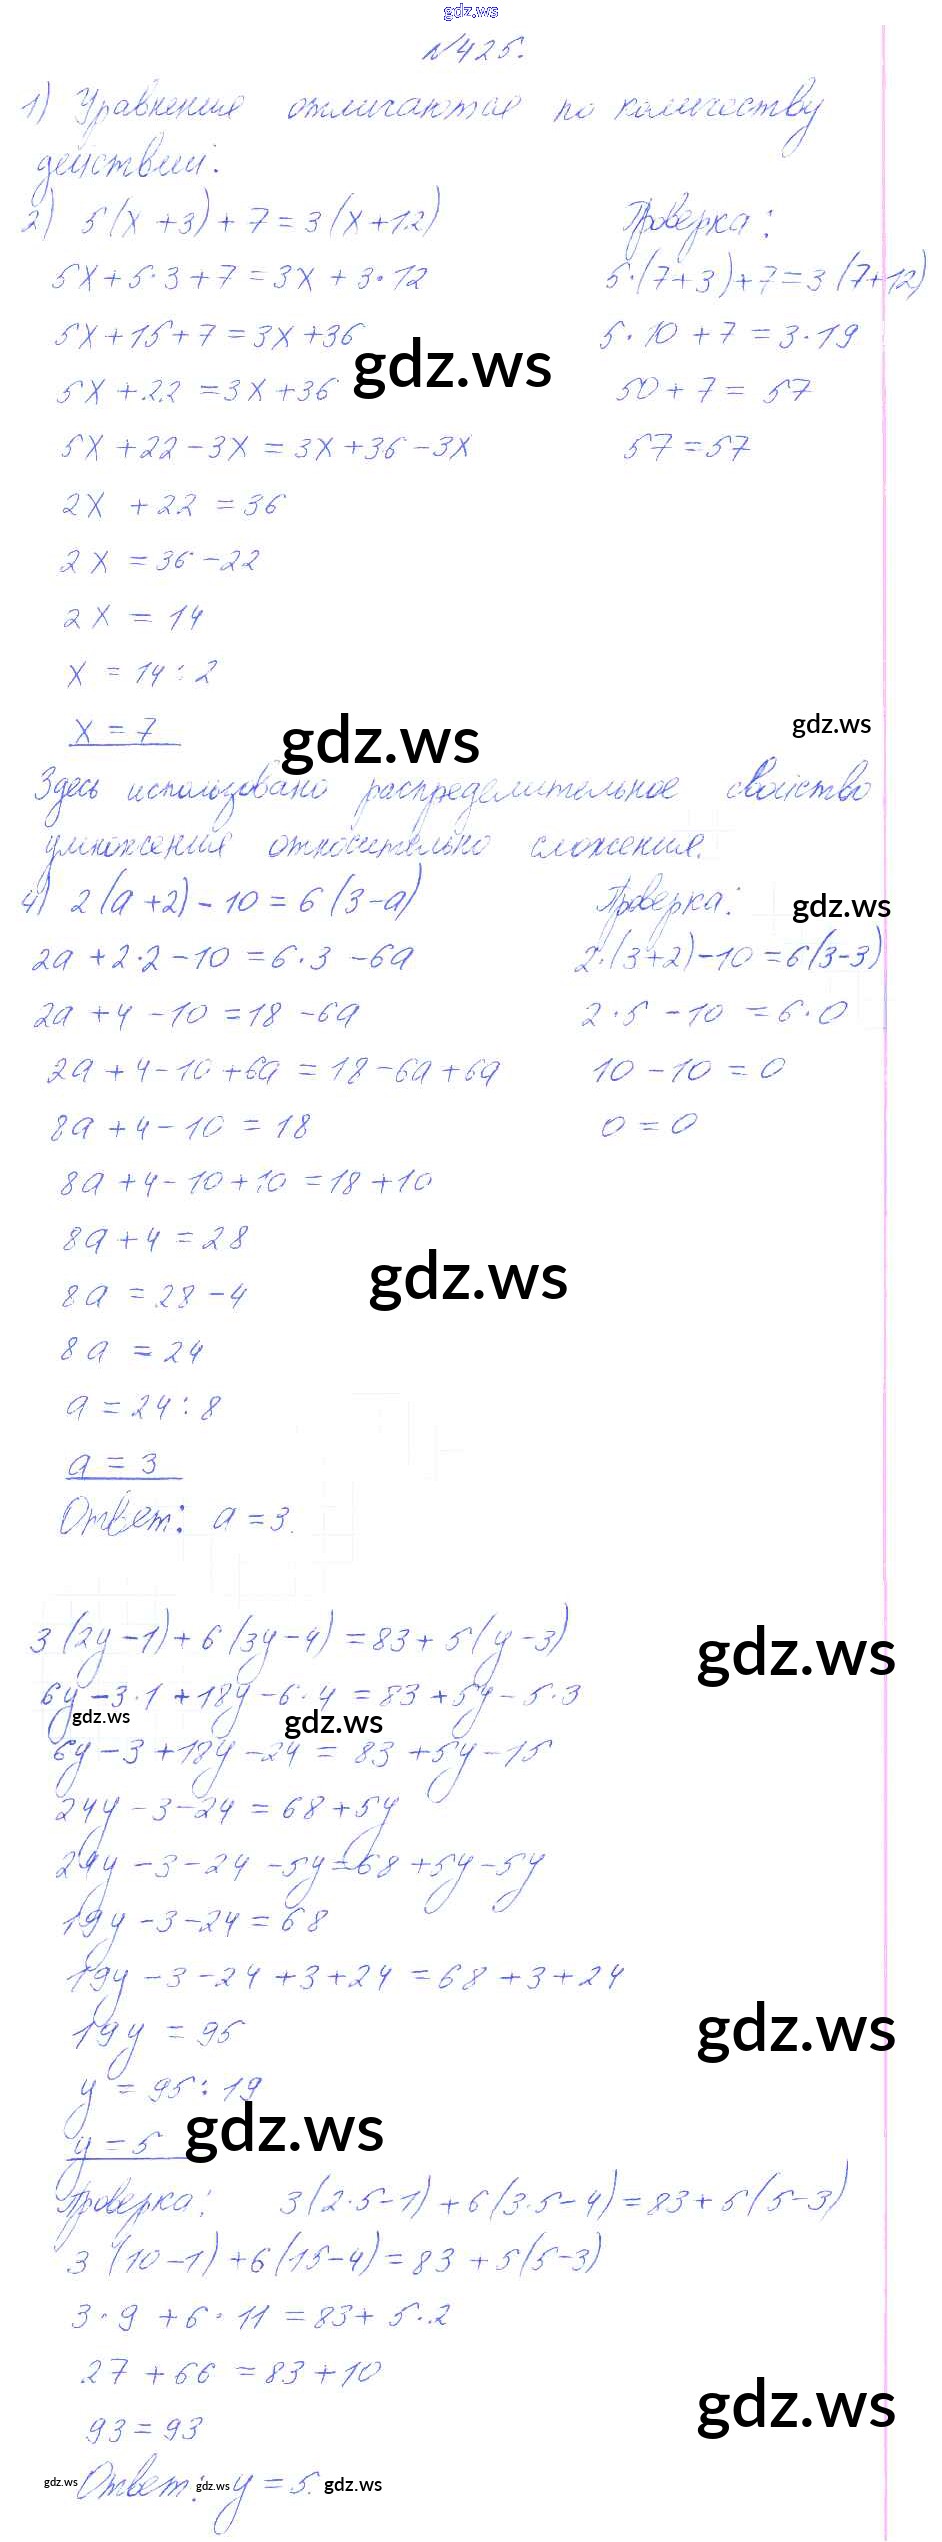 gdz.ws
№425.
1) Уравнения отличаются по количеству
действий.
2) 5(x+3)+7=3(x+12)
5x+5·3+7=3x+3·12
5x+15+7=3x+36
gdz.ws
5x+22=3x+36
5x+22-3x=3x+36-3x
2x+22=36
2x=36-22
2x=14
x=14:2
x=7
Проверка:
5·(7+3)+7=3(7+12)
5·10+7=3·19
50+7=57
57=57
gdz.ws
gdz.ws
Здесь использовано распределительное свойство
умножения относительно сложения.
4) 2(a+2)-10=6(3-a)
2a+2·2-10=6·3-6a
2a+4-10=18-6a
2a+4-10+6a=18-6a+6a
8a+4-10=18
8a+4-10+10=18+10
8a+4=28
8a=28-4
8a=24
a=24:8
a=3
Ответ: a=3.
Проверка:
gdz.ws
2·(3+2)-10=6(3-3)
2·5-10=6·0
10-10=0
0=0
gdz.ws
3(2y-1)+6(3y-4)=83+5(y-3)
gdz.ws
6y-3·1+18y-6·4=83+5y-5·3
gdz.ws
gdz.ws
6y-3+18y-24=83+5y-15
24y-3-24=68+5y
24y-3-24-5y=68+5y-5y
19y-3-24=68
19y-3-24+3+24=68+3+24
gdz.ws
19y=95
y=95:19
y=5
gdz.ws
Проверка: 3(2·5-1)+6(3·5-4)=83+5(5-3)
3(10-1)+6(15-4)=83+5(5-3)
3·9+6·11=83+5·2
27+66=83+10
gdz.ws
93=93
gdz.ws
Ответ: y=5.
gdz.ws
gdz.ws